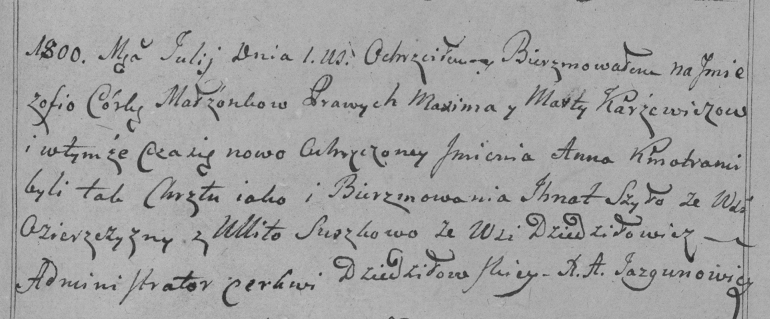 1800. Mca Julij Dnia 1. Us. Ochrzciłem y Bierzmowałem na Jmie
zofio Córkę Małżonkow Prawych Maxima y Marty Karżewiczow
i wtymże czasię nowo Ochrzczoney Jmienia Anna Kmotrami
byli tak Chrztu iako i Bierzmowania Ihnat Szyło ze Wsi
Ozierzczyzny z Ullito Suszkowo ze Wsi Dziedziłowicz
Administrator cerkwi Dziedziłowskiey X. A. Jazgunowicz